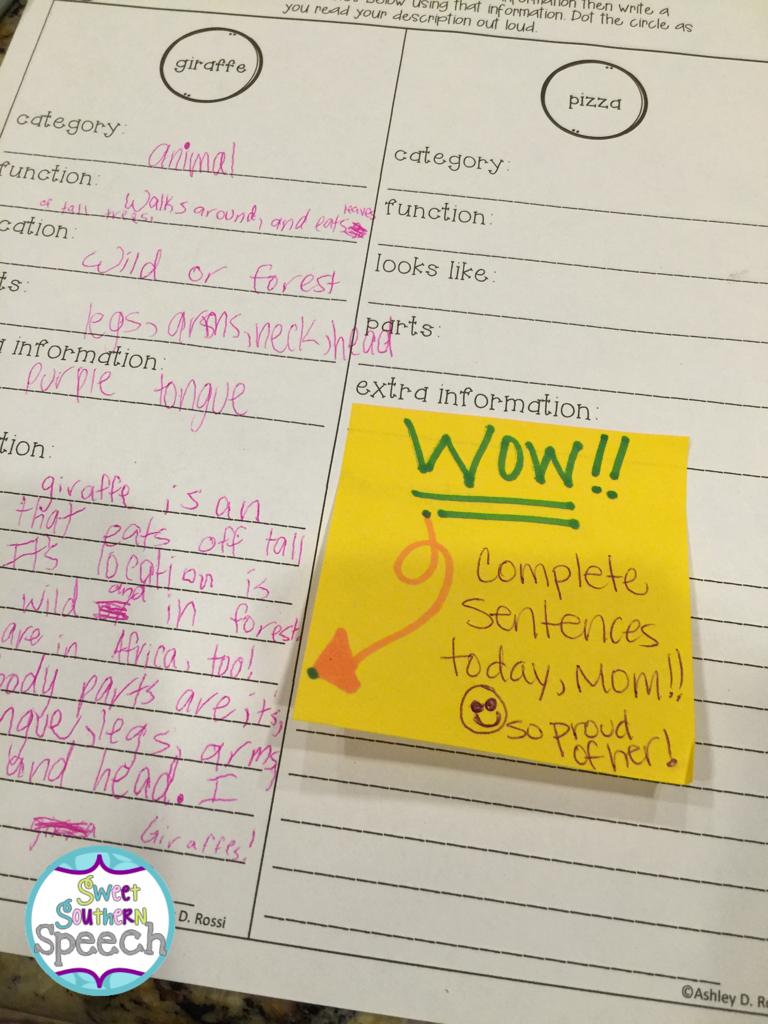 below using that information then write a
you read your description out loud.
information. Dot the circle as
giraffe
category:
animal
function:
Walks around, and eats leaves
of tall trees.
cation:
Wild or forest
ts:
legs, arms, neck, head
information:
purple tongue
tion:
giraffe is an
that eats off tall
It's location is
wild and in forest
are in Africa, too!
body parts are it's,
ngue, legs, arms,
and head. I
Giraffes!
pizza
category:
function:
looks like:
parts:
extra information:
WOW!!
Complete
sentences
today, Mom!!
so proud
of her!
Sweet
Southern
Speech
D. Rossi
©Ashley D. Ro